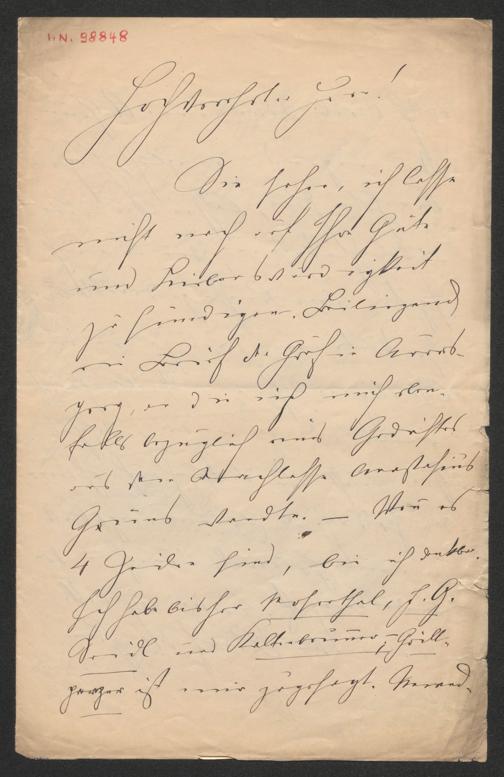 I.N. 98848
Hochverehrter Herr!
Sie sehen, ich lasse
nicht nach auf Ihre Güte
und Liebenswürdigkeit
zu sündigen. Beiliegend
ein Brief der Gräfin Auers-
perg, an die ich mich eben-
falls bezüglich eines Gedichtes
aus dem Nachlasse Anastasius
Grüns wandte. — Wenn es
4 Zeilen sind, bin ich dankbar.
Ich habe bisher Mosenthal, J. G.
Seidl und Kaltenbrunner, Grill-
parzer ist mir zugesagt.